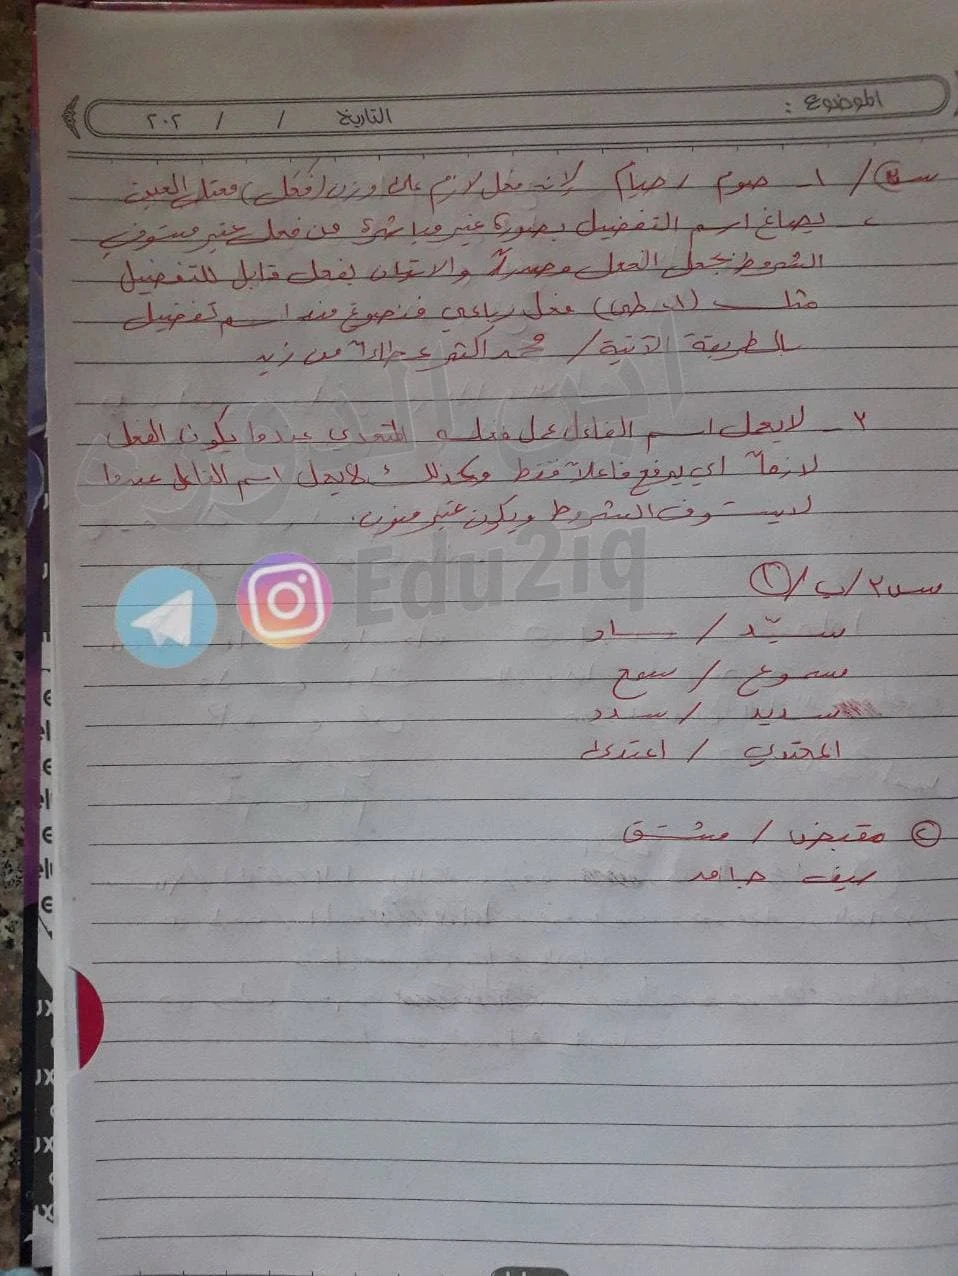 الموضوع :
التاريخ / / ٢٠٢
١- صوم ، صيام لانه فعل لازم على وزن (فَعَلَ) معتل العين
يصاغ اسم التفضيل بصورة غير مباشرة من فعل غير مستوفي
الشروط نجعل الفعل مصدراً والاتيان بفعل قابل للتفضيل
مثلـ (اعطى) فعل رباعي فنصوغ منه اسم تفضيل
بالطريقة الاتية / محمد اكثر عطاءً من زيد
٢- لا يعمل اسم الفاعل عمل فعله المتعدي عندما يكون الفعل
لازماً اي يرفع فاعلاً فقط وكذلك لا يعمل اسم الفاعل عندما
لا يستوف الشروط ويكون غير منون.
Edu2iq
س٢/ب/①
سيّد / ساد
مسموع / سمع
سديد / سدد
المعتدي / اعتدى
② مقبض / مشتق
سيف جامد